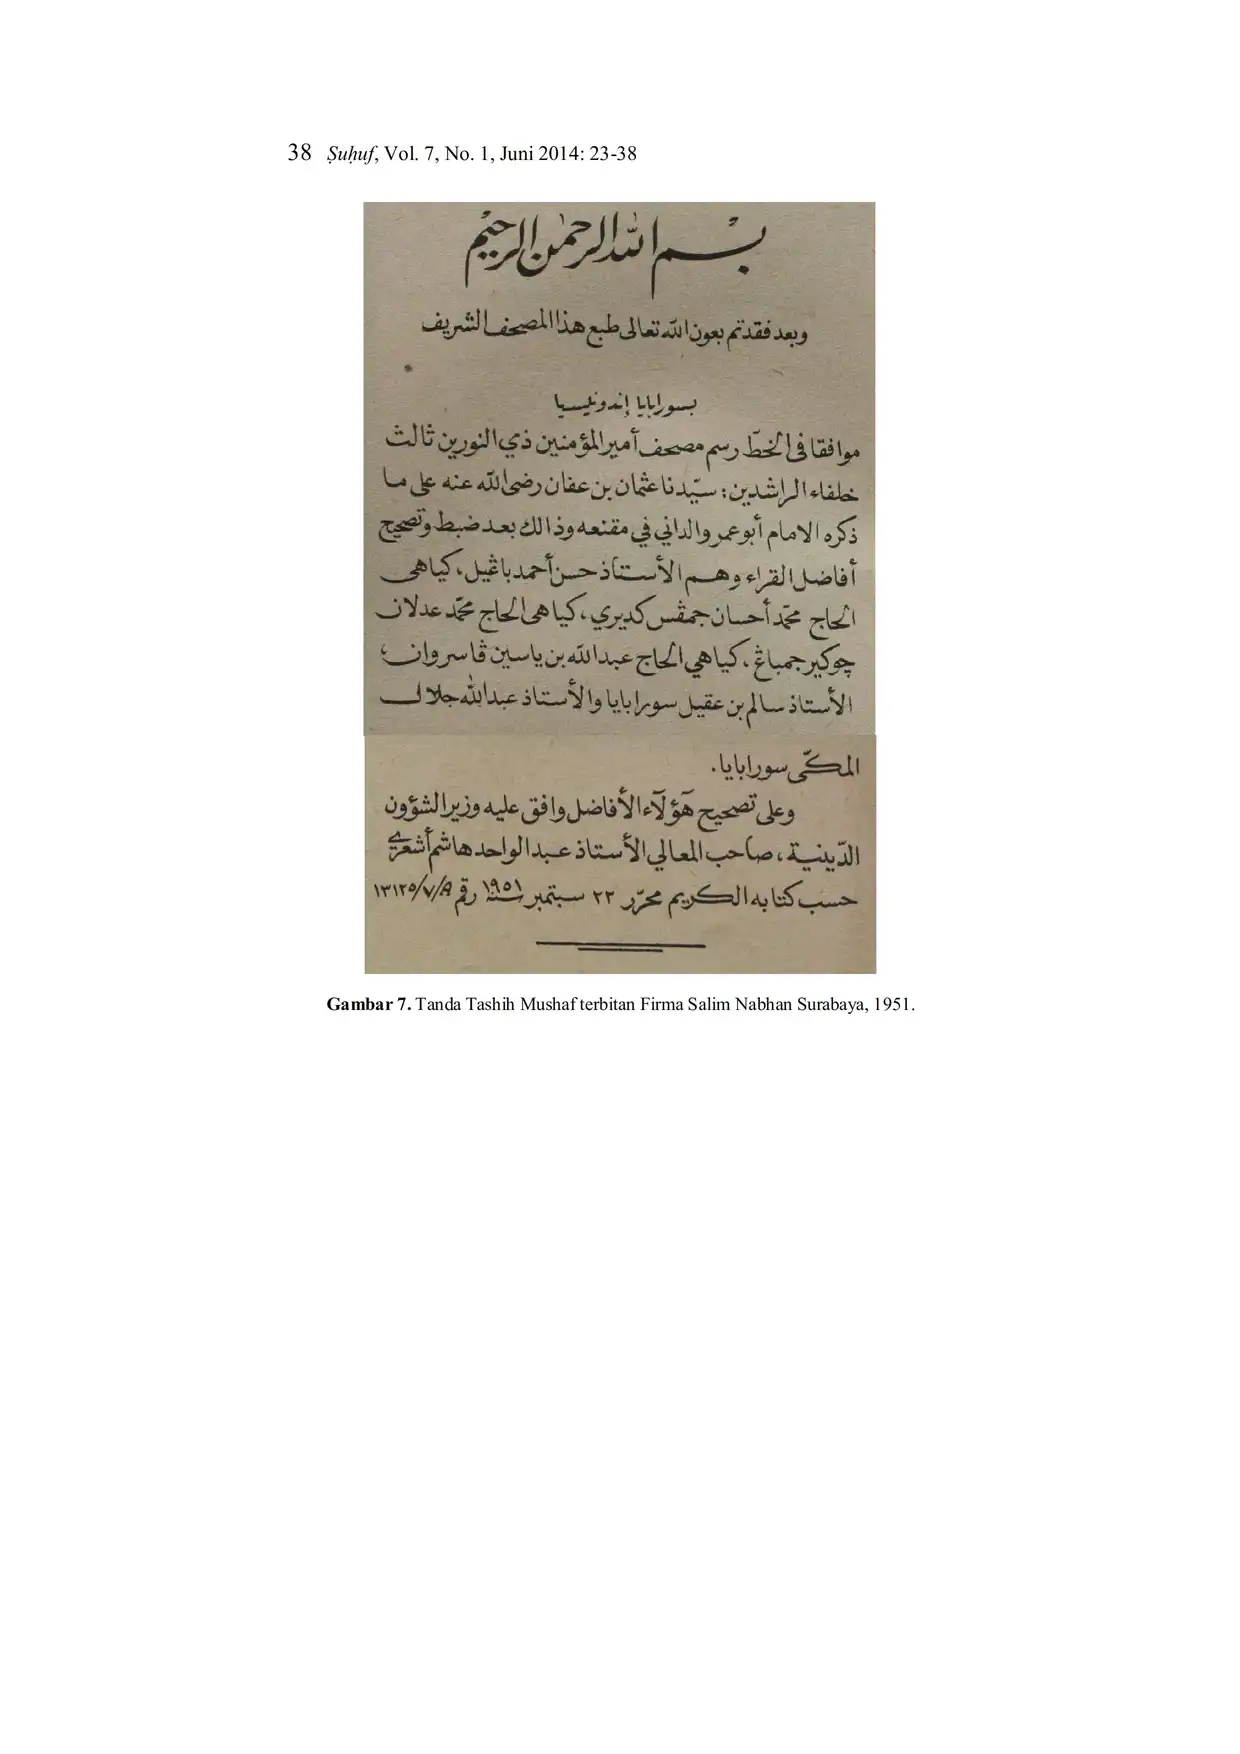 38 Ṣuḥuf, Vol. 7, No. 1, Juni 2014: 23-38
بسم الله الرحمن الرحيم
وبعد فقد تم بعون الله تعالى طبع هذا المصحف الشريف
بسورابايا إندونيسيا
موافقا فى الخطّ رسم مصحف أمير المؤمنين ذي النورين ثالث
خلفاء الراشدين: سيّدنا عثمان بن عفان رضى الله عنه على ما
ذكره الامام أبو عمرو الداني في مقنعه وذالك بعد ضبط وتصحيح
أفاضل القراء وهم الأستاذ حسن أحمد باڠيل، كياهى
الحاج محمّد أحسان جمڤس كديري، كياهى الحاج محمّد عدلان
چوكير جمباڠ، كياهي الحاج عبد الله بن ياسين ڤاسروان،
الأستاذ سالم بن عقيل سورابايا والأستاذ عبد الله جلال
المكّى سورابايا.
وعلى تصحيح هؤلآء الأفاضل وافق عليه وزير الشؤون
الدّينية، صاحب المعالي الأستاذ عبد الواحد هاشم أشعري
حسب كتابه الكريم محرّر ٢٣ سبتمبر سنة ١٩٥١ رقم ١٣١٢٥/٧/A
Gambar 7. Tanda Tashih Mushaf terbitan Firma Salim Nabhan Surabaya, 1951.